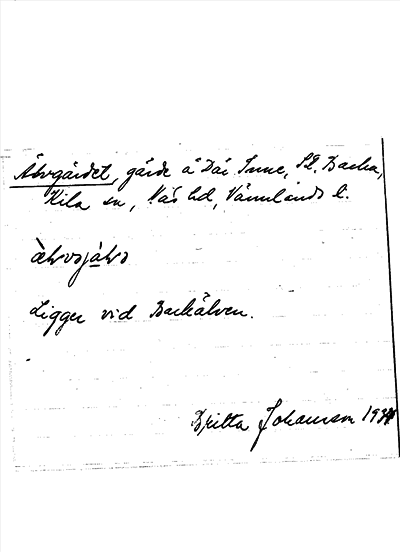 Älvgärdet, gärde å Dai Inne, St. Backa,
Kila sn, Näs hd, Värmlands l.
Ligger vid Backälven.
Britta Johansson 1934